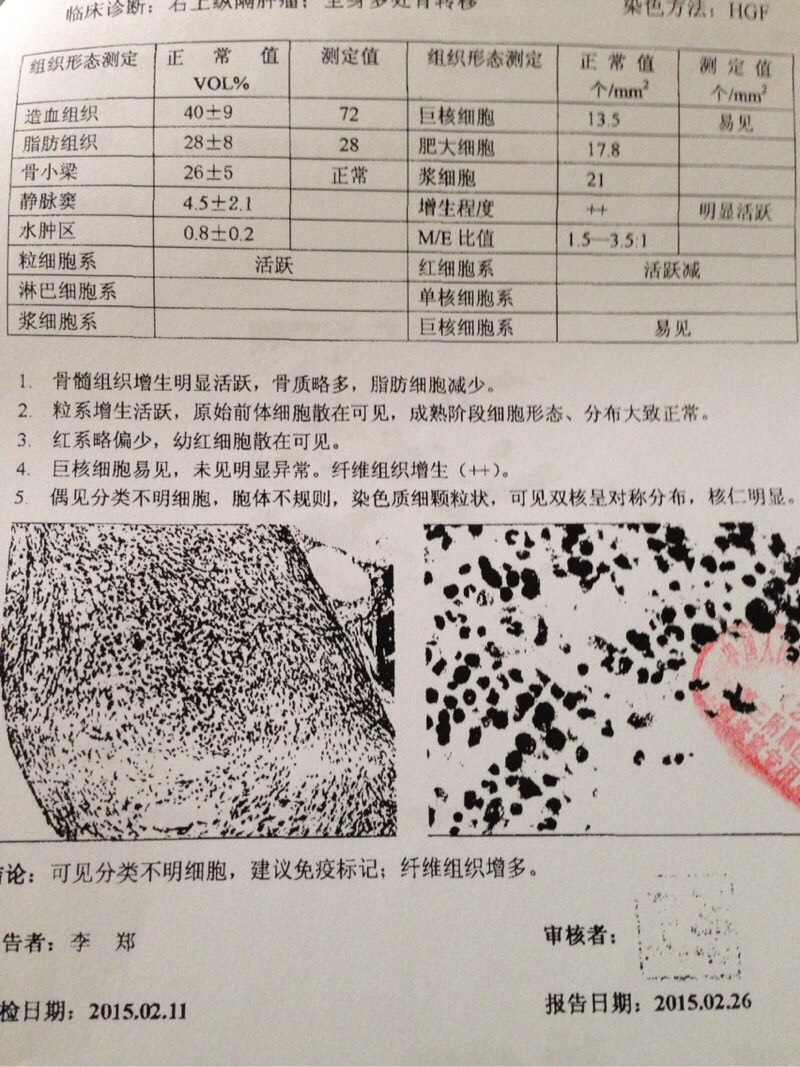 临床诊断：右上纵隔肿瘤；全身多处骨转移 染色方法：HGF
组织形态测定 正常值 VOL% 测定值 组织形态测定 正常值 个/mm² 测定值 个/mm²
造血组织 40±9 72 巨核细胞 13.5 易见
脂肪组织 28±8 28 肥大细胞 17.8
骨小梁 26±5 正常 浆细胞 21
静脉窦 4.5±2.1 增生程度 ++ 明显活跃
水肿区 0.8±0.2 M/E 比值 1.5—3.5:1
粒细胞系 活跃 红细胞系 活跃减
淋巴细胞系 单核细胞系
浆细胞系 巨核细胞系 易见
1. 骨髓组织增生明显活跃，骨质略多，脂肪细胞减少。
2. 粒系增生活跃，原始前体细胞散在可见，成熟阶段细胞形态、分布大致正常。
3. 红系略偏少，幼红细胞散在可见。
4. 巨核细胞易见，未见明显异常。纤维组织增生（++）。
5. 偶见分类不明细胞，胞体不规则，染色质细颗粒状，可见双核呈对称分布，核仁明显。
论：可见分类不明细胞，建议免疫标记；纤维组织增多。
告者：李 郑 审核者：
检日期：2015.02.11 报告日期：2015.02.26